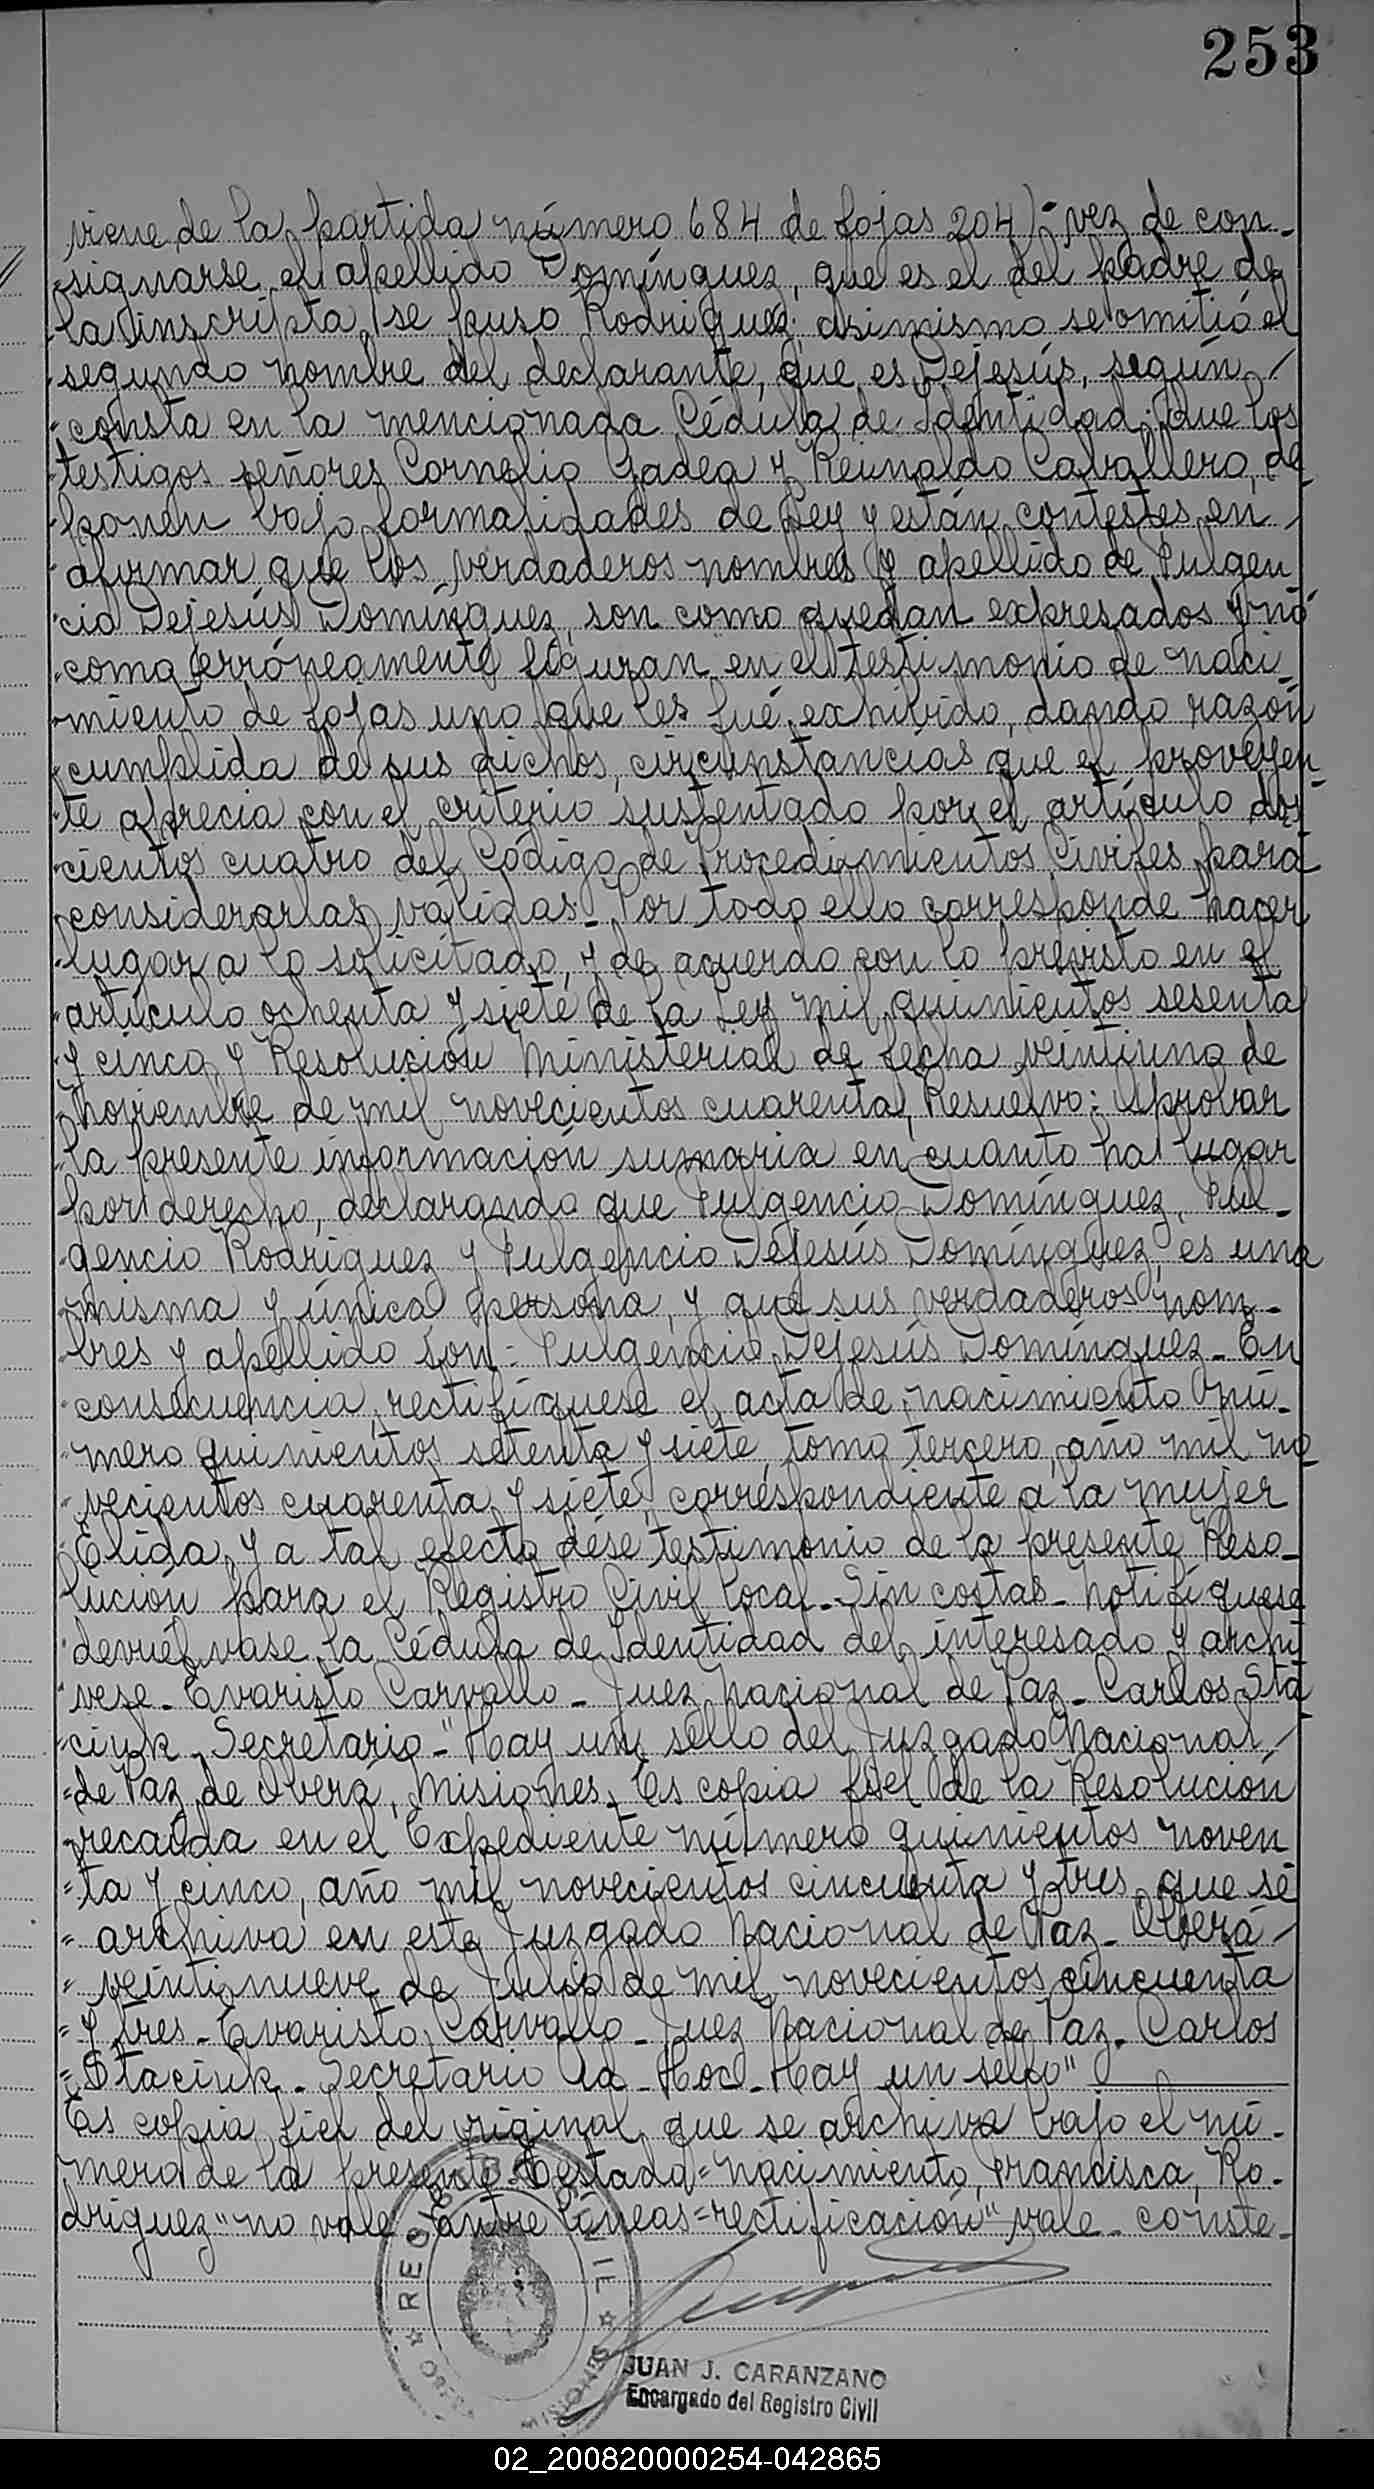 253
viene de la partida número 684 de fojas 204) - vez de con-
signarse el apellido Domínguez, que es el del padre de
la inscripta, se puso Rodriguez; asimismo se omitió el
segundo nombre del declarante, que es Dejesús, según
consta en la mencionada Cédula de Identidad; Que los
testigos señores Cornelio Gadea y Reinaldo Cavallero, de
ponen bajo formalidades de Ley y están contestes en
afirmar que los verdaderos nombres y apellido de Fulgen
cio Dejesús Domínguez, son como quedan expresados y no
como erróneamente figuran en el testimonio de naci-
miento de fojas uno que les fué exhibido, dando razón
cumplida de sus dichos, circunstancias que el proveyen-
te aprecia con el criterio sustentado por el artículo dos
cientos cuatro del Código de Procedimientos Civiles para
considerarlas válidas - Por todo ello corresponde hacer
lugar a lo solicitado, y de acuerdo con lo previsto en el
artículo ochenta y siete de la Ley mil quinientos sesenta
y cinco y Resolución Ministerial de fecha veintiuno de
Noviembre de mil novecientos cuarenta, Resuelvo: Aprobar
la presente información sumaria en cuanto ha lugar
por derecho, declarando que Fulgencio Domínguez, Ful-
gencio Rodríguez y Fulgencio Dejesús Domínguez, es una
misma y única persona, y que sus verdaderos nom-
bres y apellido son: Fulgencio Dejesús Domínguez - En
consecuencia, rectifíquese el acta de nacimiento nú-
mero quinientos setenta y siete, tomo tercero, año mil no
vecientos cuarenta y siete, correspondiente a la mujer
Elida, y a tal efecto dése testimonio de la presente Reso-
lución para el Registro Civil local - Sin costas - Notifíquese
devuélvase la Cédula de Identidad del interesado y archí
vese - Evaristo Carvallo - Juez Nacional de Paz - Carlos Sta
ciuk - Secretario -" Hay un sello del Juzgado Nacional
de Paz de Oberá, Misiones - Es copia fiel de la Resolución
recaída en el Expediente número quinientos noven
ta y cinco, año mil novecientos cincuenta y tres, que se
archiva en este Juzgado Nacional de Paz - Oberá
veintinueve de Julio de mil novecientos cincuenta
y tres - Evaristo Carvallo - Juez Nacional de Paz - Carlos
Staciuk - Secretario Ad - Hoc - Hay un sello"
Es copia fiel del riginal que se archiva bajo el nú-
mero de la presente - Testado = nacimiento, Francisca, Ro-
driguez" no vale - Entre líneas = rectificación" vale - conste -
REGISTRO CIVIL
MISIONES
JUAN J. CARANZANO
Encargado del Registro Civil
02_200820000254-042865